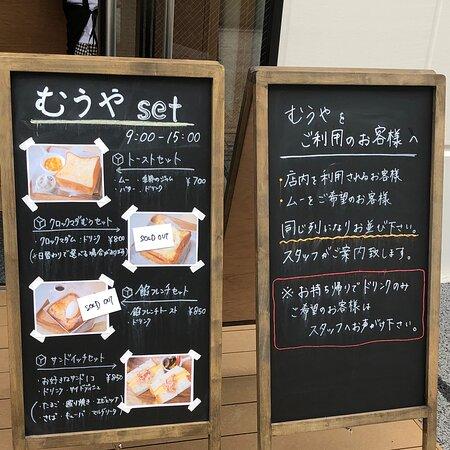 むうや set
9:00-15:00
トーストセット
・ムー ・季節のジャム
・バター ・ドリンク ¥700
クロックマダムむうセット
・クロックマダム ・ドリンク ¥800
SOLD OUT
SOLD OUT
餡フレンチセット
・餡フレンチトースト ¥850
・ドリンク
サンドイッチセット
・お好きなサンド1コ ¥850
・ドリンク ・サイドディッシュ
・たまご ・照り焼き ・エビカツ
・さば ・キューバ ・マルゲリータ
むうやを
ご利用のお客様へ
・店内を利用されるお客様
・ムーをご希望のお客様
同じ列になりお並び下さい。
スタッフがご案内致します。
※お持ち帰りでドリンクのみ
ご希望のお客様は
スタッフへお声がけ下さい。